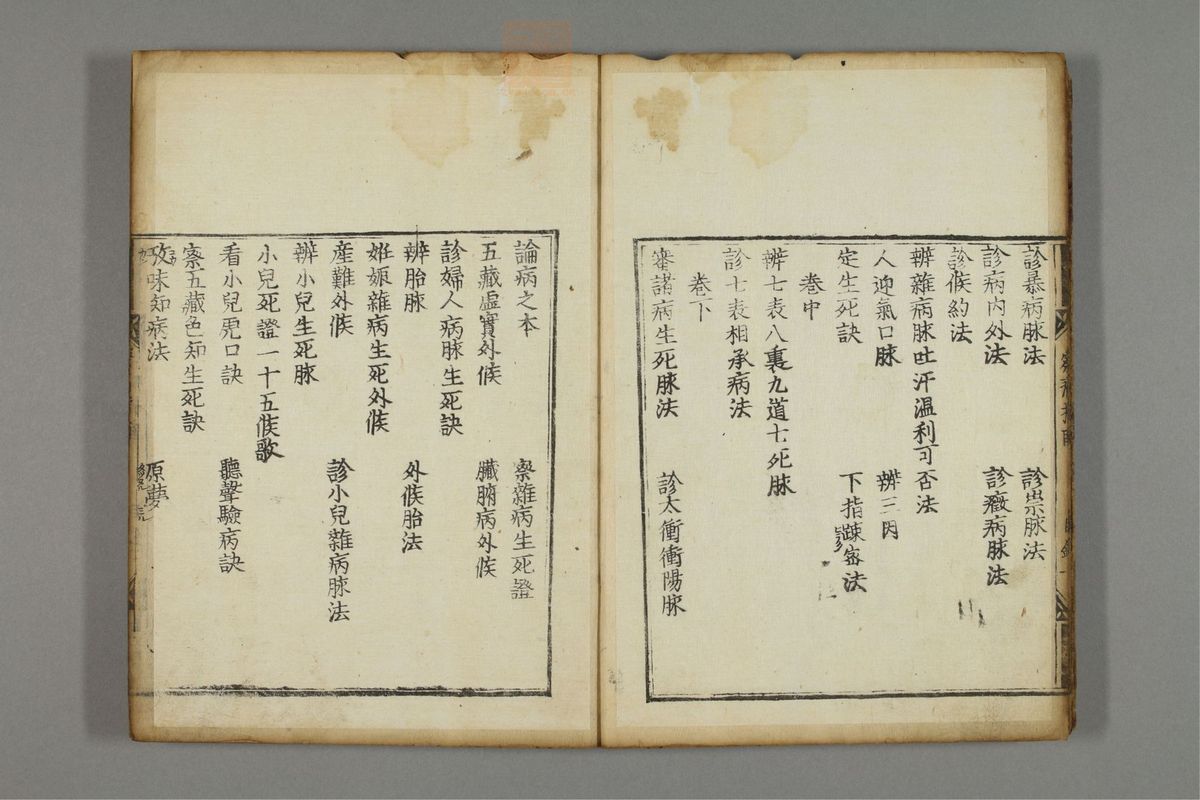 診暴病脉法 診祟脉法
診病內外法 診癥病脉法
診候約法
辨雜病脉吐汗温利可否法
人迎氣口脉 辨三因
定生死訣 下指踈密法
卷中
辨七表八裏九道七死脉
診七表相承病法
卷下
審諸病生死脉法 診太衝衝陽脉
論病之本 察雜病生死證
五藏虛實外候 臟腑病外候
診婦人病脉生死訣
辨胎脉 外候胎法
姙娠雜病生死外候
産難外候 診小兒雜病脉法
辨小兒生死脉
小兒死證一十五候歌
看小兒虎口訣 聽聲驗病訣
察五藏色知生死訣
攷味知病法 原夢